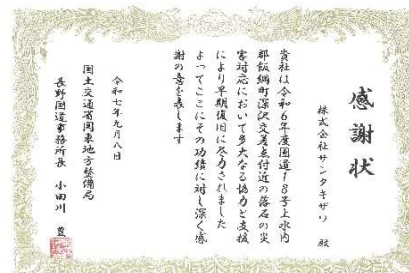 感謝状
株式会社サンタキザワ 殿
貴社は令和6年度国道18号上水内
郡飯綱町深沢交差点付近の落石の災
害対応において多大なる協力と支援
により早期復旧に尽力されました
よってここにその功績に対し深く感
謝の意を表します
令和七年九月八日
国土交通省関東地方整備局
長野国道事務所長 小田川 豊